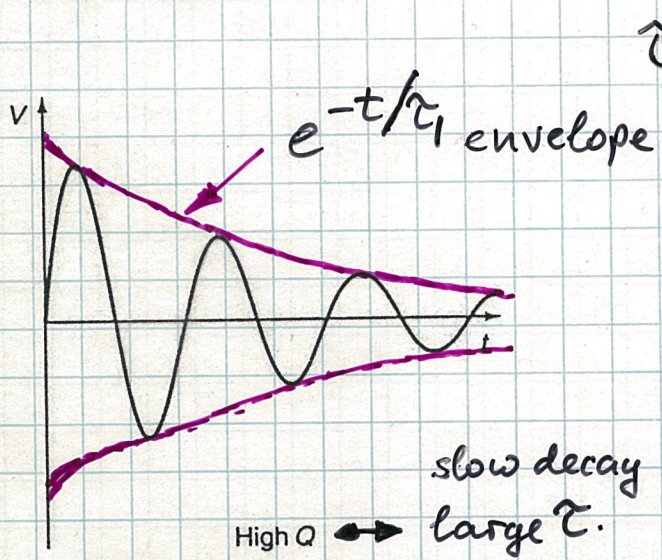 V
e^{-t/τ₁} envelope
t
slow decay
High Q ↔ large τ.